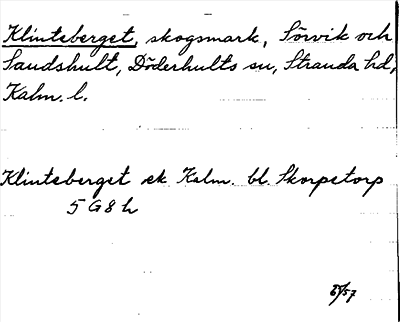 Klinteberget, skogsmark, Sörvik och
Sandshult, Döderhults sn, Stranda hd,
Kalm. l.
Klinteberget ek Kalm. bl. Skorpetorp
5 G 8 h